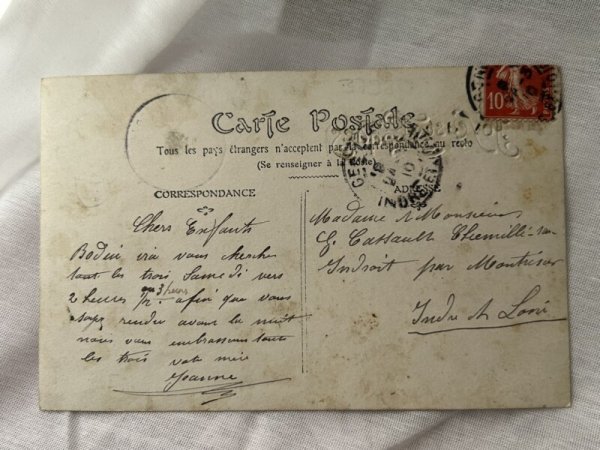 Carte Postale
Tous les pays étrangers n'acceptent pas la correspondance au recto
(Se renseigner à la Poste)
CORRESPONDANCE
ADRE
10
INDRE
Chers Enfants
Bodin ira vous chercher
tout les trois Samedi vers
ou 3 heures
2 heures 1/2 afin que vous
soyez rendu avant la nuit
nous vous embrassons toute
les trois votre mère
Jeanne
Madame & Monsieur
Chemillé sur
Indroit par Montrésor
Indre & Loire